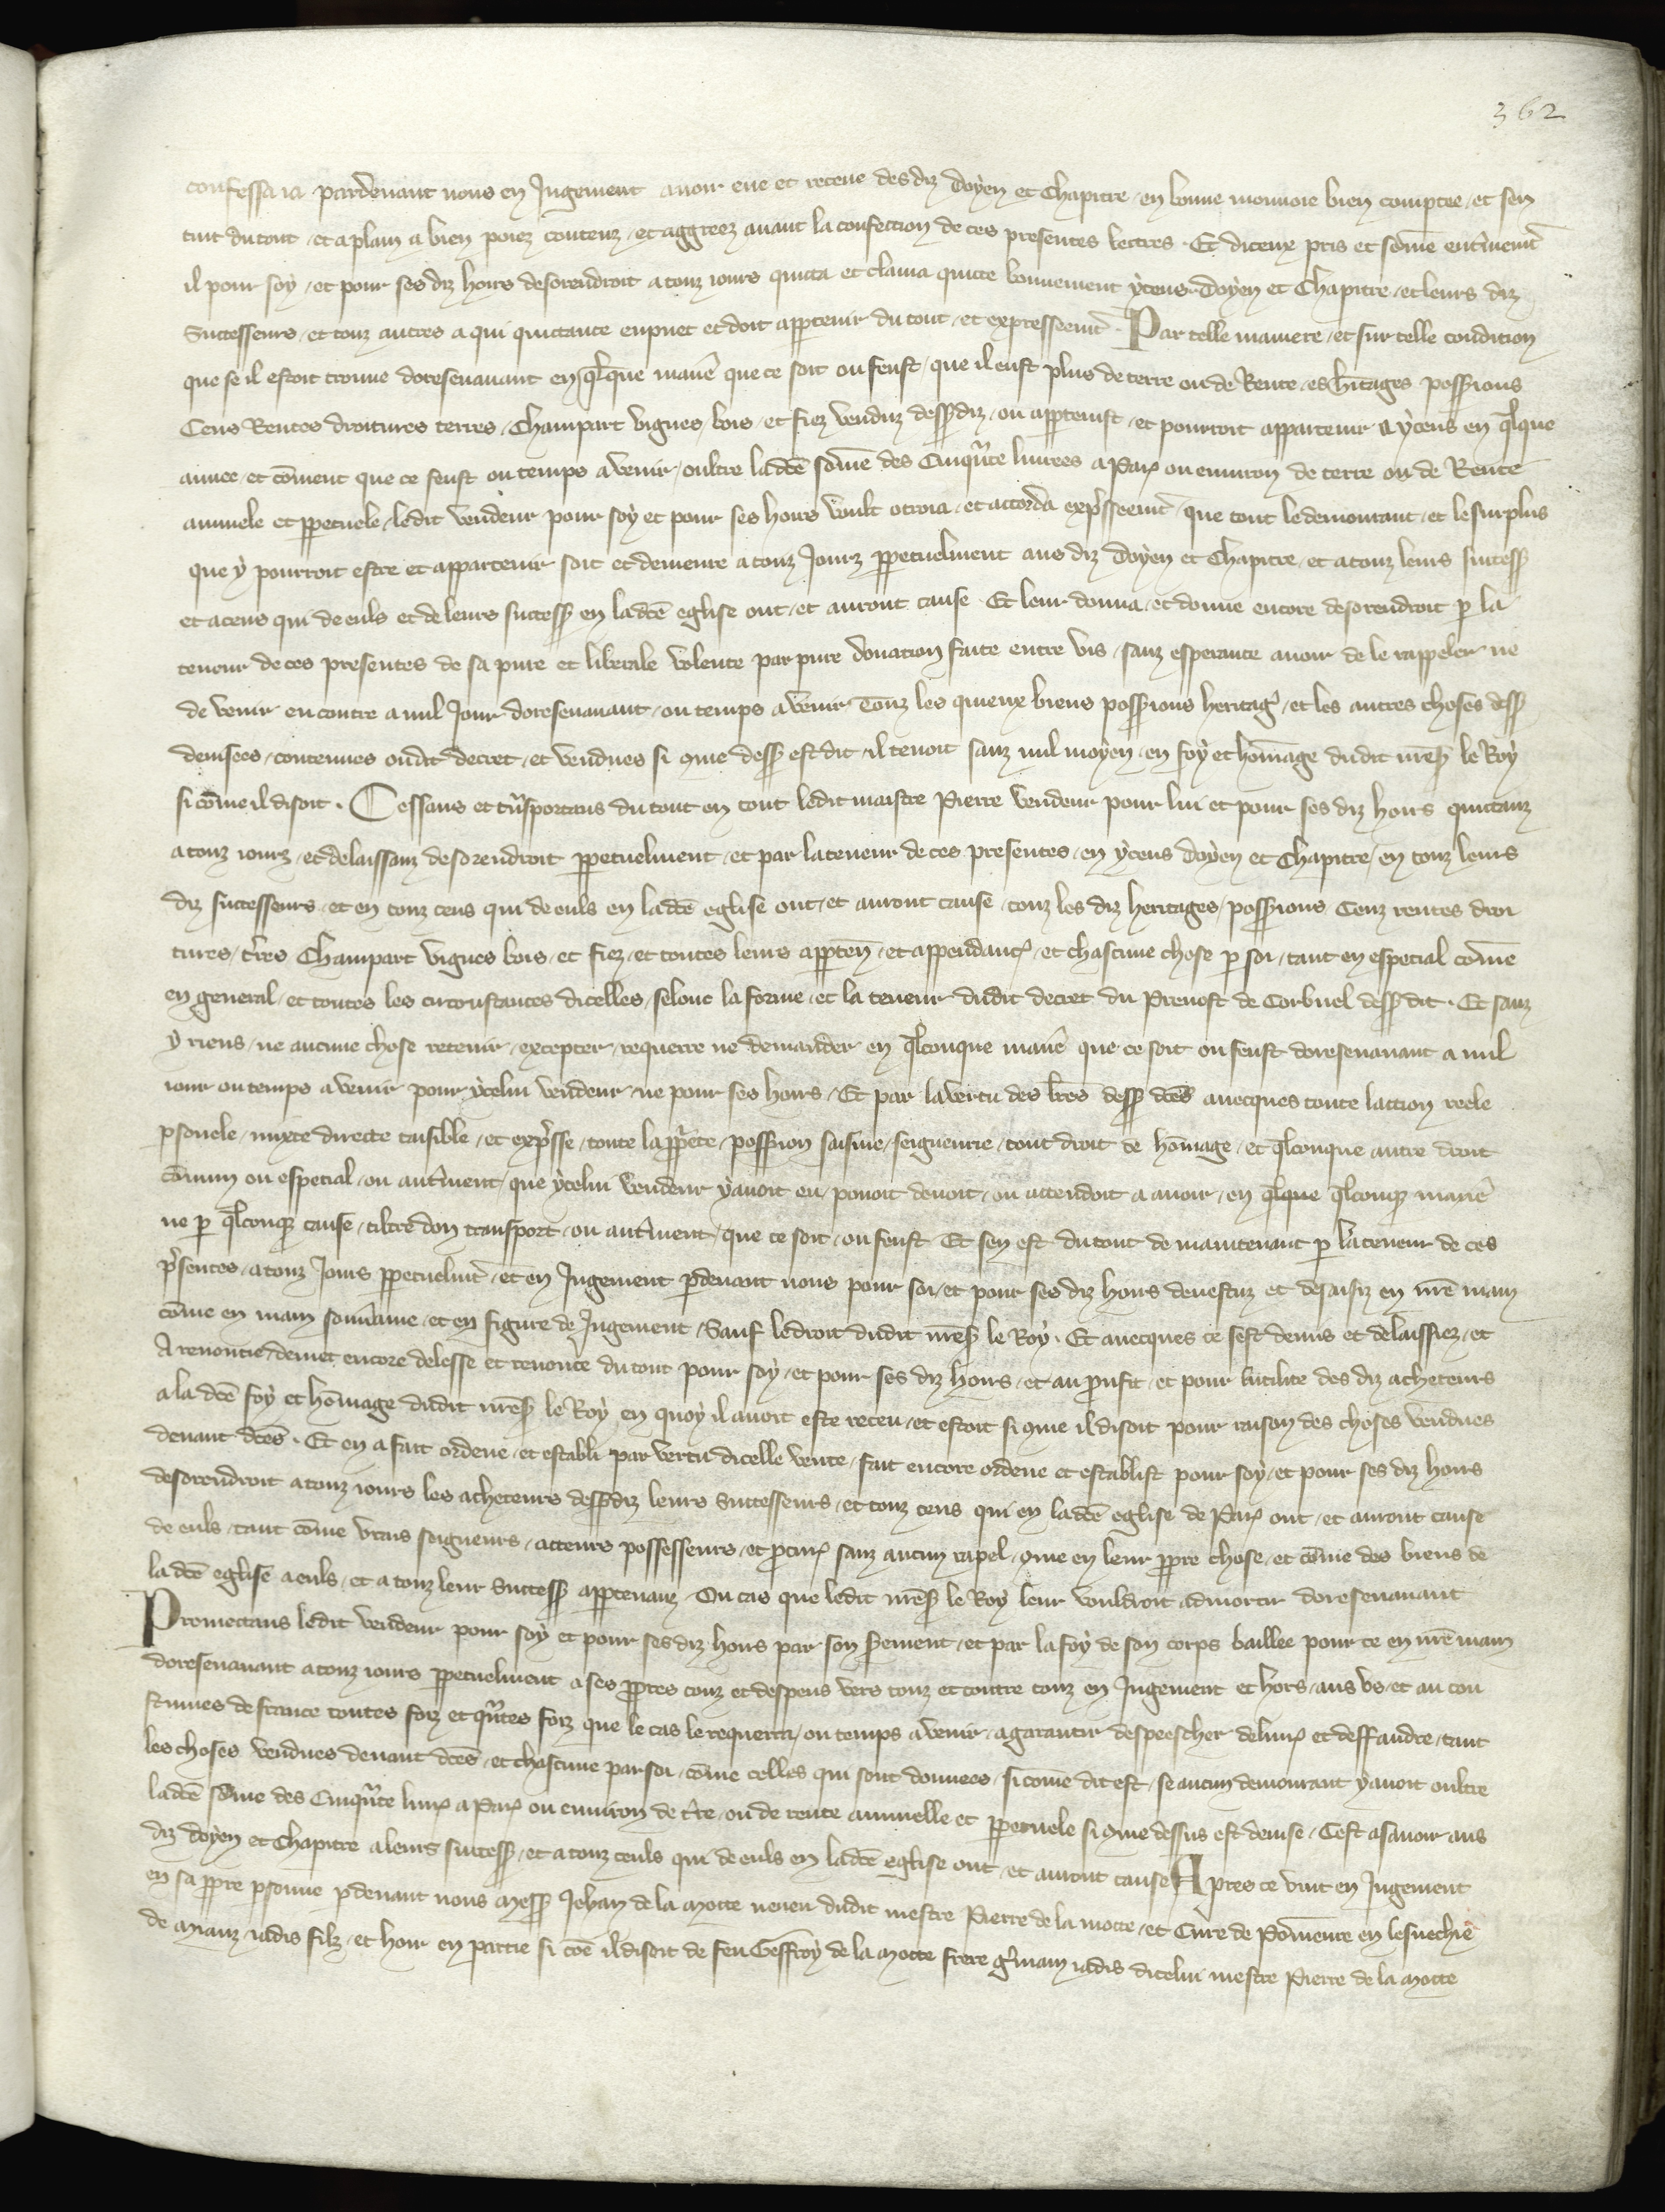 362
confessa ia pardevant nous en Jugement avoir eue et receue des diz doyen et Chapitre en bonne monnoie bien comptee et sen
tint du tout et a plain a bien poiez contenz et aggreez avant la confection de ces presentes lectres. Et diceux pris et sōme entieremt̄
il pour soy et pour ses diz hoirs desorendroit a touz iours quicta et clama quicte bonnement yceus doyen et Chapitre et leurs diz
Successeurs et touz autres a qui quictance en puet et doit appartenir du tout et expresseemt̄. Par telle maniere et sur telle condition
que se il estoit trouve doresenavant en q̄lque manie᷑ que ce soit ou feust que il eust plus de terre ou de Rente es h̄itages possessions
Cens Rentes droitures terres Champart vignes bois et fiez venduz dess⁹diz ou appartenist et pourroit appartenir a yceus en q̄lque
annee et cōment que ce feust ou temps a venir oultre lad̄ce sōme des Cinqu̾nte livrees a Par̄ ou environ de terre ou de Rente
annuele et p̱petuele ledit vendeur pour soy et pour ses hoirs voult otroia et accorda exp̄sseemt̄ que tout le demourant et le surplus
que y pourroit estre et appartenir soit et demeure a touz Jourz p̱petuelment aus diz doyen et Chapitre et a touz leurs success̄
et a ceus qui de euls et de leurs success̄ en lad̄ce eglise ont et auront cause Et leur donna et donne encore desorendroit p̱ la
teneur de ces presentes de sa pure et liberale volente par pure donation faite entre vis sanz esperance avoir de le rappeler ne
de venir encontre a nul Jour doresenavant ou temps a venir Touz les quieux biens possessions heritaḡ et les autres choses dess⁹
devisees contenues oudit decret et vendues si 9me dess⁹ est dit il tenoit sanz nul moyen en foy et hōmage dudit nr̄e s̄ le Roy
si cōme il disoit. Cessans et tn̄sportans du tout en tout ledit maistre Pierre vendeur pour lui et pour ses diz hoirs quictanz
a touz iourz et delaissanz desorendroit p̱petuelment et par la teneur de ces presentes en yceus doyen et Chapitre en touz leurs
diz successeurs et en touz ceus qui de euls en lad̄ce eglise ont et auront cause touz les diz heritages possessions Cenz rentes droi
tures t̄res Champart vignes bois et fiez et toutes leurs apparten̄ et appendanc̄ et chascune chose p̱ soi tant en especial cōme
en general et toutes les circonstances dicelles selonc la forme et la teneur dudit decret du Prevost de Corbueil dess⁹ dit. Et sanz
y riens ne aucune chose retenir excepter requerre ne demander en q̄lconque manie᷑ que ce soit ou feust doresenavant a nul
iour ou temps a venir pour ycelui vendeur ne pour ses hoirs Et par la vertu des l̄res dess⁹ d̄ces avecques toute laction reele
p̱sonele mixte directe taisible et exp̄sse toute la pp̄ete possession saisine seigneurie tout droit de hōmage et q̄lconque autre droit
cōmun ou especial ou aut̄ment que ycelui vendeur y avoit eu povoit devoit ou attendoit a avoir en q̄lque q̄lconq̄ manie᷑
ne p̱ q̄lconq̄ cause tiltre don transport ou aut̄ment que ce soit ou feust Et sen est du tout de maintenant p̱ la teneur de ces
p̄sentes a touz Jours p̱petuelmt̄ et en Jugement p̱devant nous pour soi et pour ses diz hoirs devestuz et desaisiz en nr̄e main
cōme en main souv̄aine et en figure de Jugement Sauf le droit dudit nr̄e s̄ le Roy. Et avecques ce sest demis et delaissiez et
A renoncie demet encore delesse et renonce du tout pour soy et pour ses diz hoirs et au proufit et pour lutilite des diz acheteurs
a la d̄ce foy et hōmage dudit nr̄e s̄ le Roy en quoy il avoit este receu et estoit si 9me il disoit pour raison des choses vendues
devant d̄ces. Et en a fait ordene et establi par vertu dicelle vente fait encore ordene et establist pour soy et pour ses diz hoirs
desorendroit a touz iours les acheteurs dess⁹diz leurs Successeurs et touz ceus qui en lad̄ce eglise de Par̄ ont et auront cause
de euls tant cōme vrais seigneurs acteurs possesseurs et procur̄ sanz aucun rapel 9me en leur p̱pre chose et cōme des biens de
la d̄ce eglise a euls et a touz leur Success̄ appartenanz Ou cas que ledit nr̄e s̄ le Roy leur vouldroit admortir doresenavant
Promectans ledit vendeur pour soy et pour ses diz hoirs par son serement et par la foy de son corps baillee pour ce en nr̄e main
doresenavant a touz iours p̱petuelment a ses p̱pres couz et despens vers touz et contre touz en Jugement et hors aus us et au cou
stumes de france toutes foiz et qn̄tes foiz que le cas le requerra ou temps a venir a garantir despeescher delivr̄ et deffandre tant
les choses vendues devant d̄ces et chascune par soi cōme celles qui sont donnees si cōme dit est se aucun demourant y avoit oultre
lad̄ce sōme des Cinqu̾nte livr̄ a Par̄ ou environ de t̄re ou de rente annuelle et p̱petuele si 9me dessus est devise Cest asavoir aus
diz doyen et Chapitre a leurs success̄ et a touz ceuls qui de euls en lad̄ce eglise ont et auront cause Apres ce vint en Jugement
en sa p̱pre p̱sonne p̱devant nous Mess̄ Jehan de la Motte neveu dudit mestre Pierre de la motte et Cure de Pōmence en leveschie
de Meauz iadis filz et hoir en partie si cōe il disoit de feu Geffroy de la Motte frere g̱main iadis dicelui mestre Pierre de la Motte